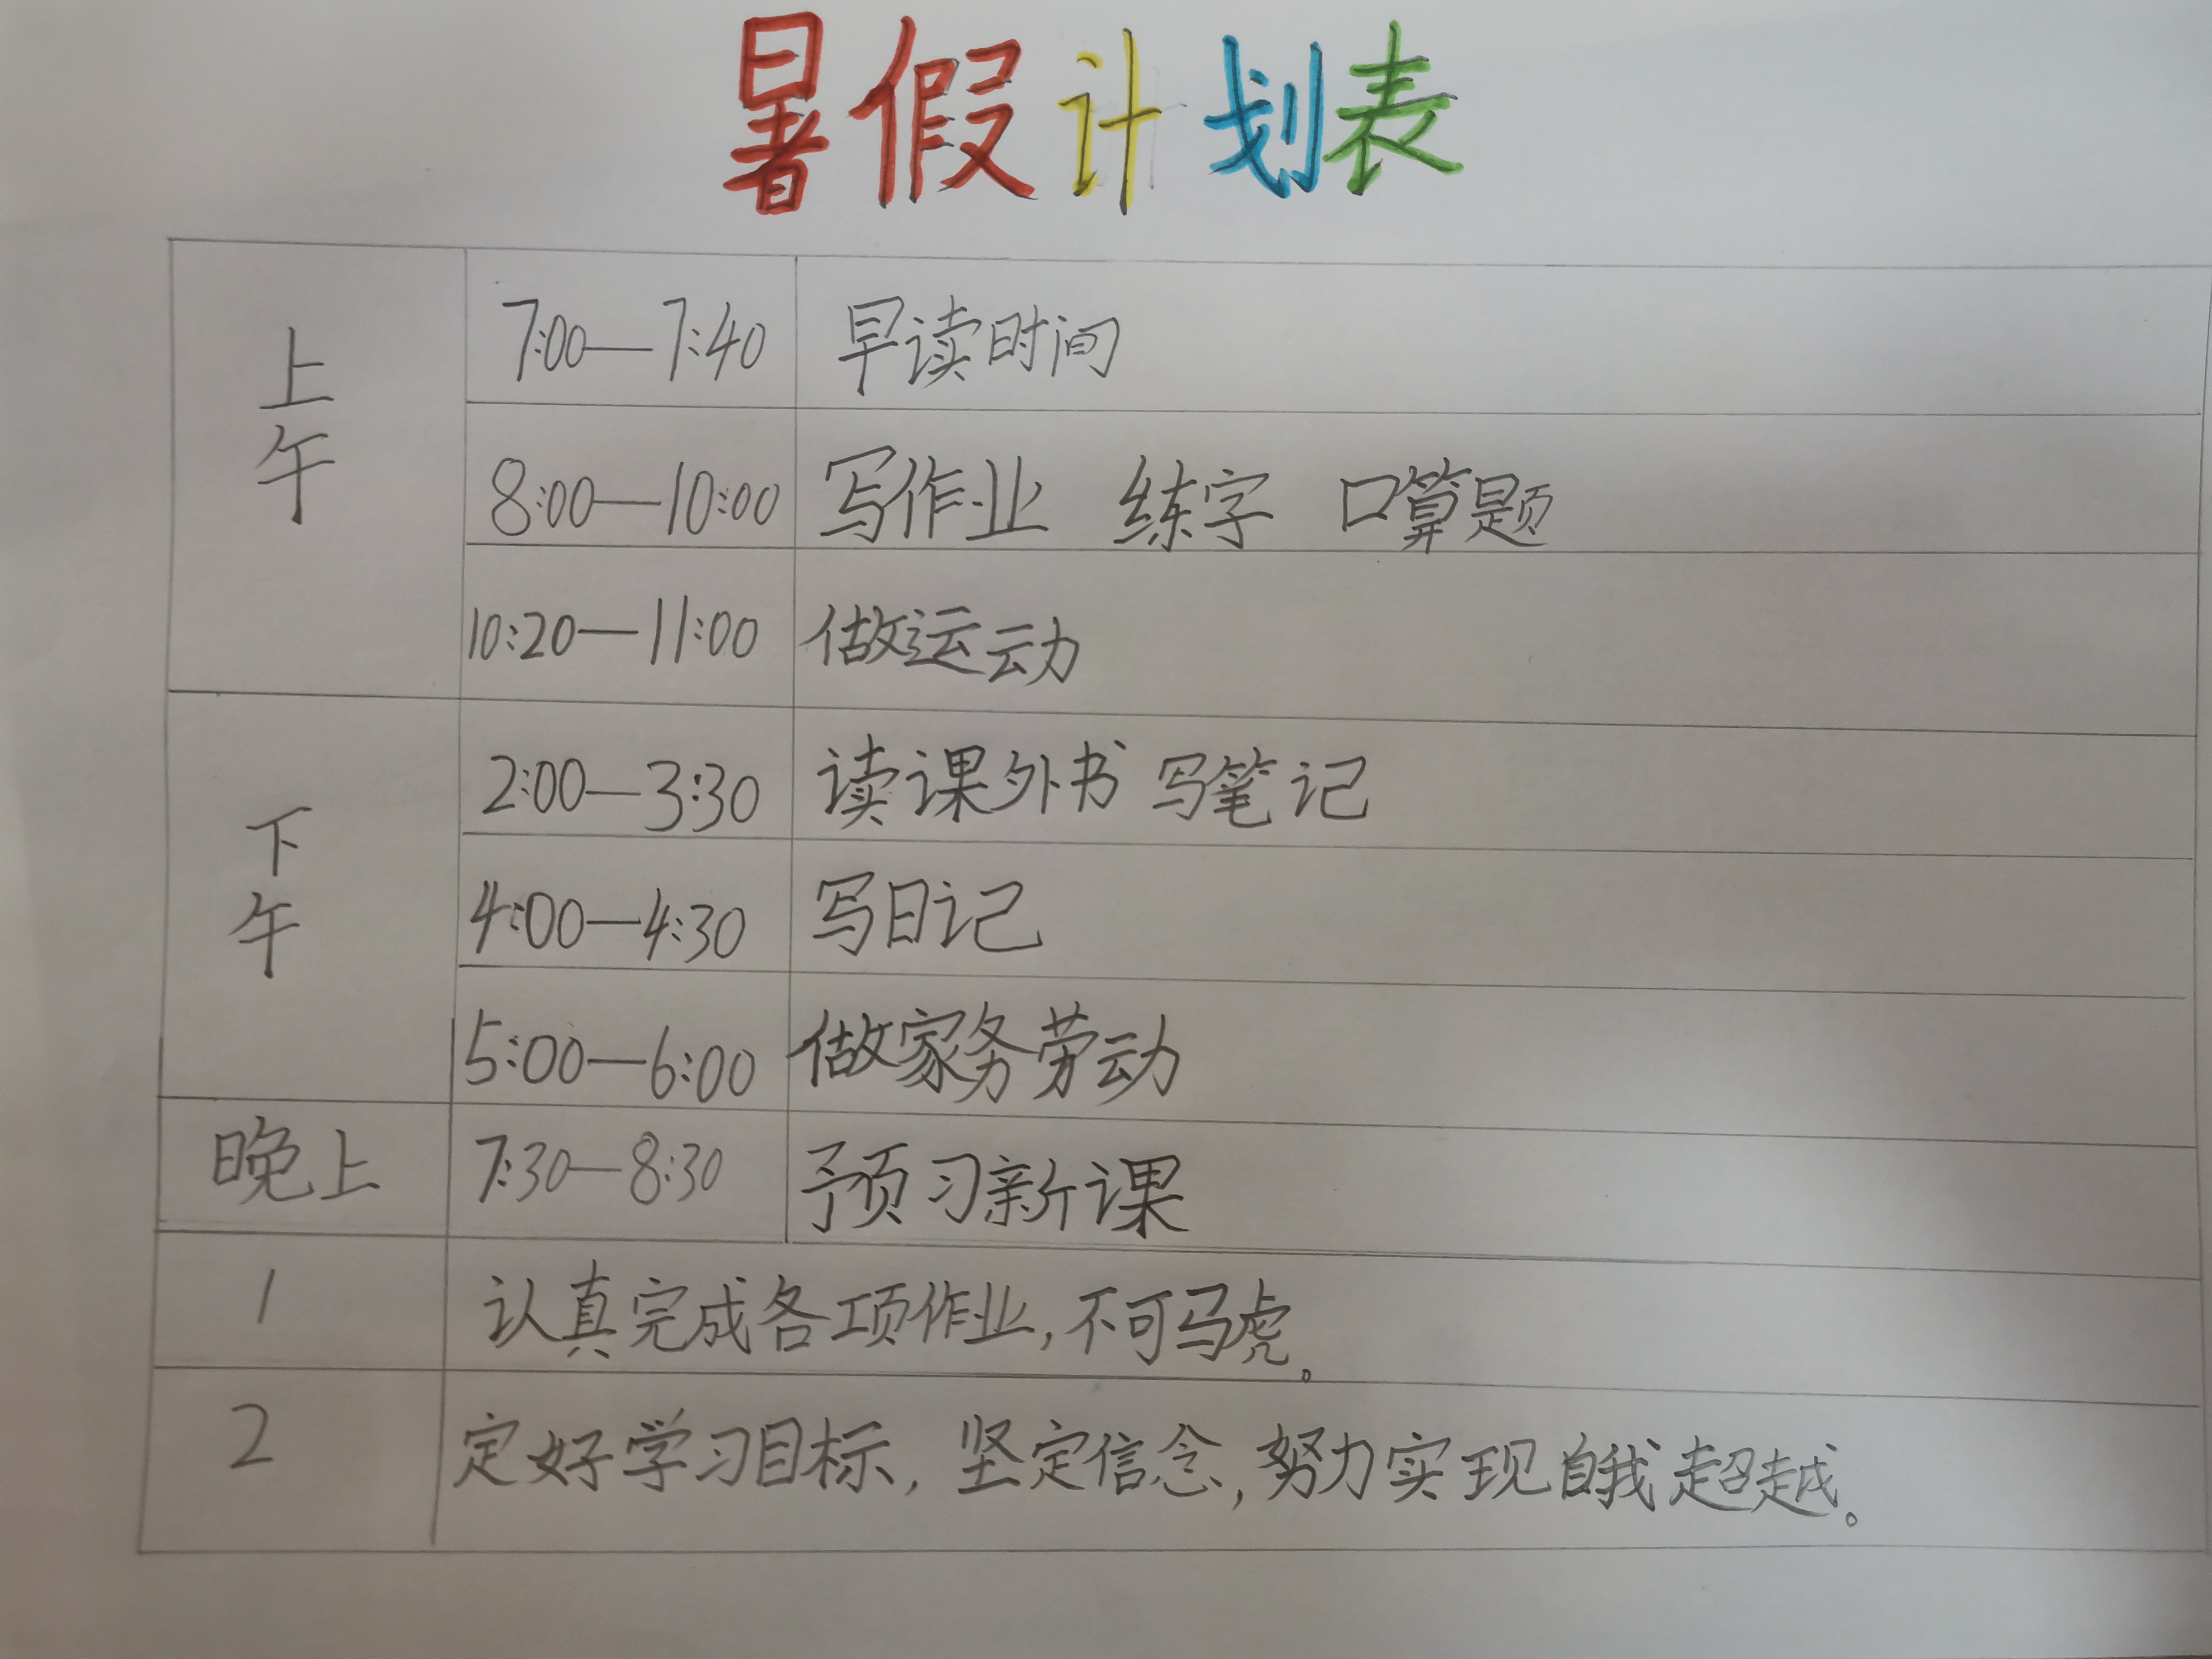 暑假计划表
上午
7:00—7:40 早读时间
8:00—10:00 写作业 练字 口算题
10:20—11:00 做运动
下午
2:00—3:30 读课外书 写笔记
4:00—4:30 写日记
5:00—6:00 做家务劳动
晚上 7:30—8:30 预习新课
1 认真完成各项作业,不可马虎。
2 定好学习目标,坚定信念,努力实现自我超越。